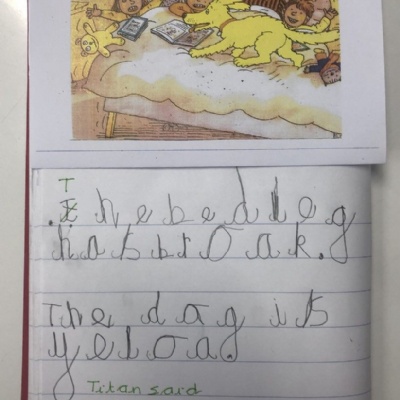 The bed leg
has brOak.
The dag is
yeloa.
Titan said